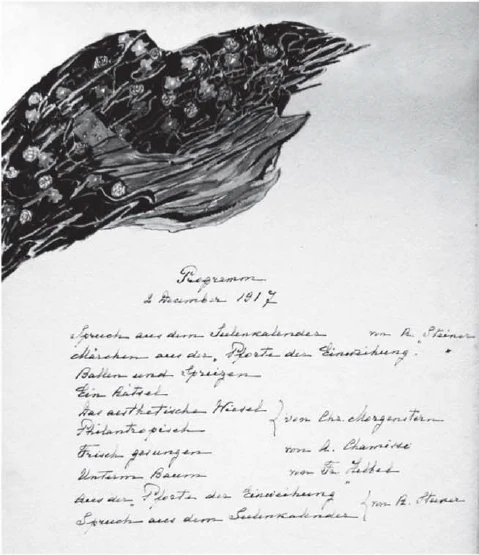 Programm
2 December 1917
Spruch aus dem Seelenkalender von R. Steiner
Märchen aus der „Pforte der Einweihung. "
Ballen und Spreizen
Ein Rätsel
Das aesthetische Wiesel
Philantropisch } von Chr. Morgenstern
Frisch gesungen von A. Chamisso
Unterm Baum von Fr. Hebbel
Aus der „Pforte der Einweihung"
Spruch aus dem Seelenkalender } von R. Steiner